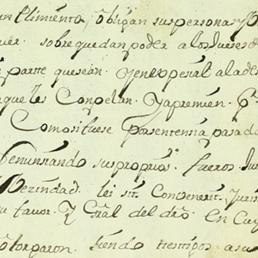 un plimiento, obligan sus personas y
sobre quedan poder a los Jueses d
partte que sean. y en expesial a la de
que les Conpelan Yapremien.
Como si fuese por sentensia pasada
Renunsiando sus propios. fueros Ju
Vezindad. lei sit Convenerit. Juris
su favor. y Gral del dro. En Cuyo
otorgaron. siendo testigos a su